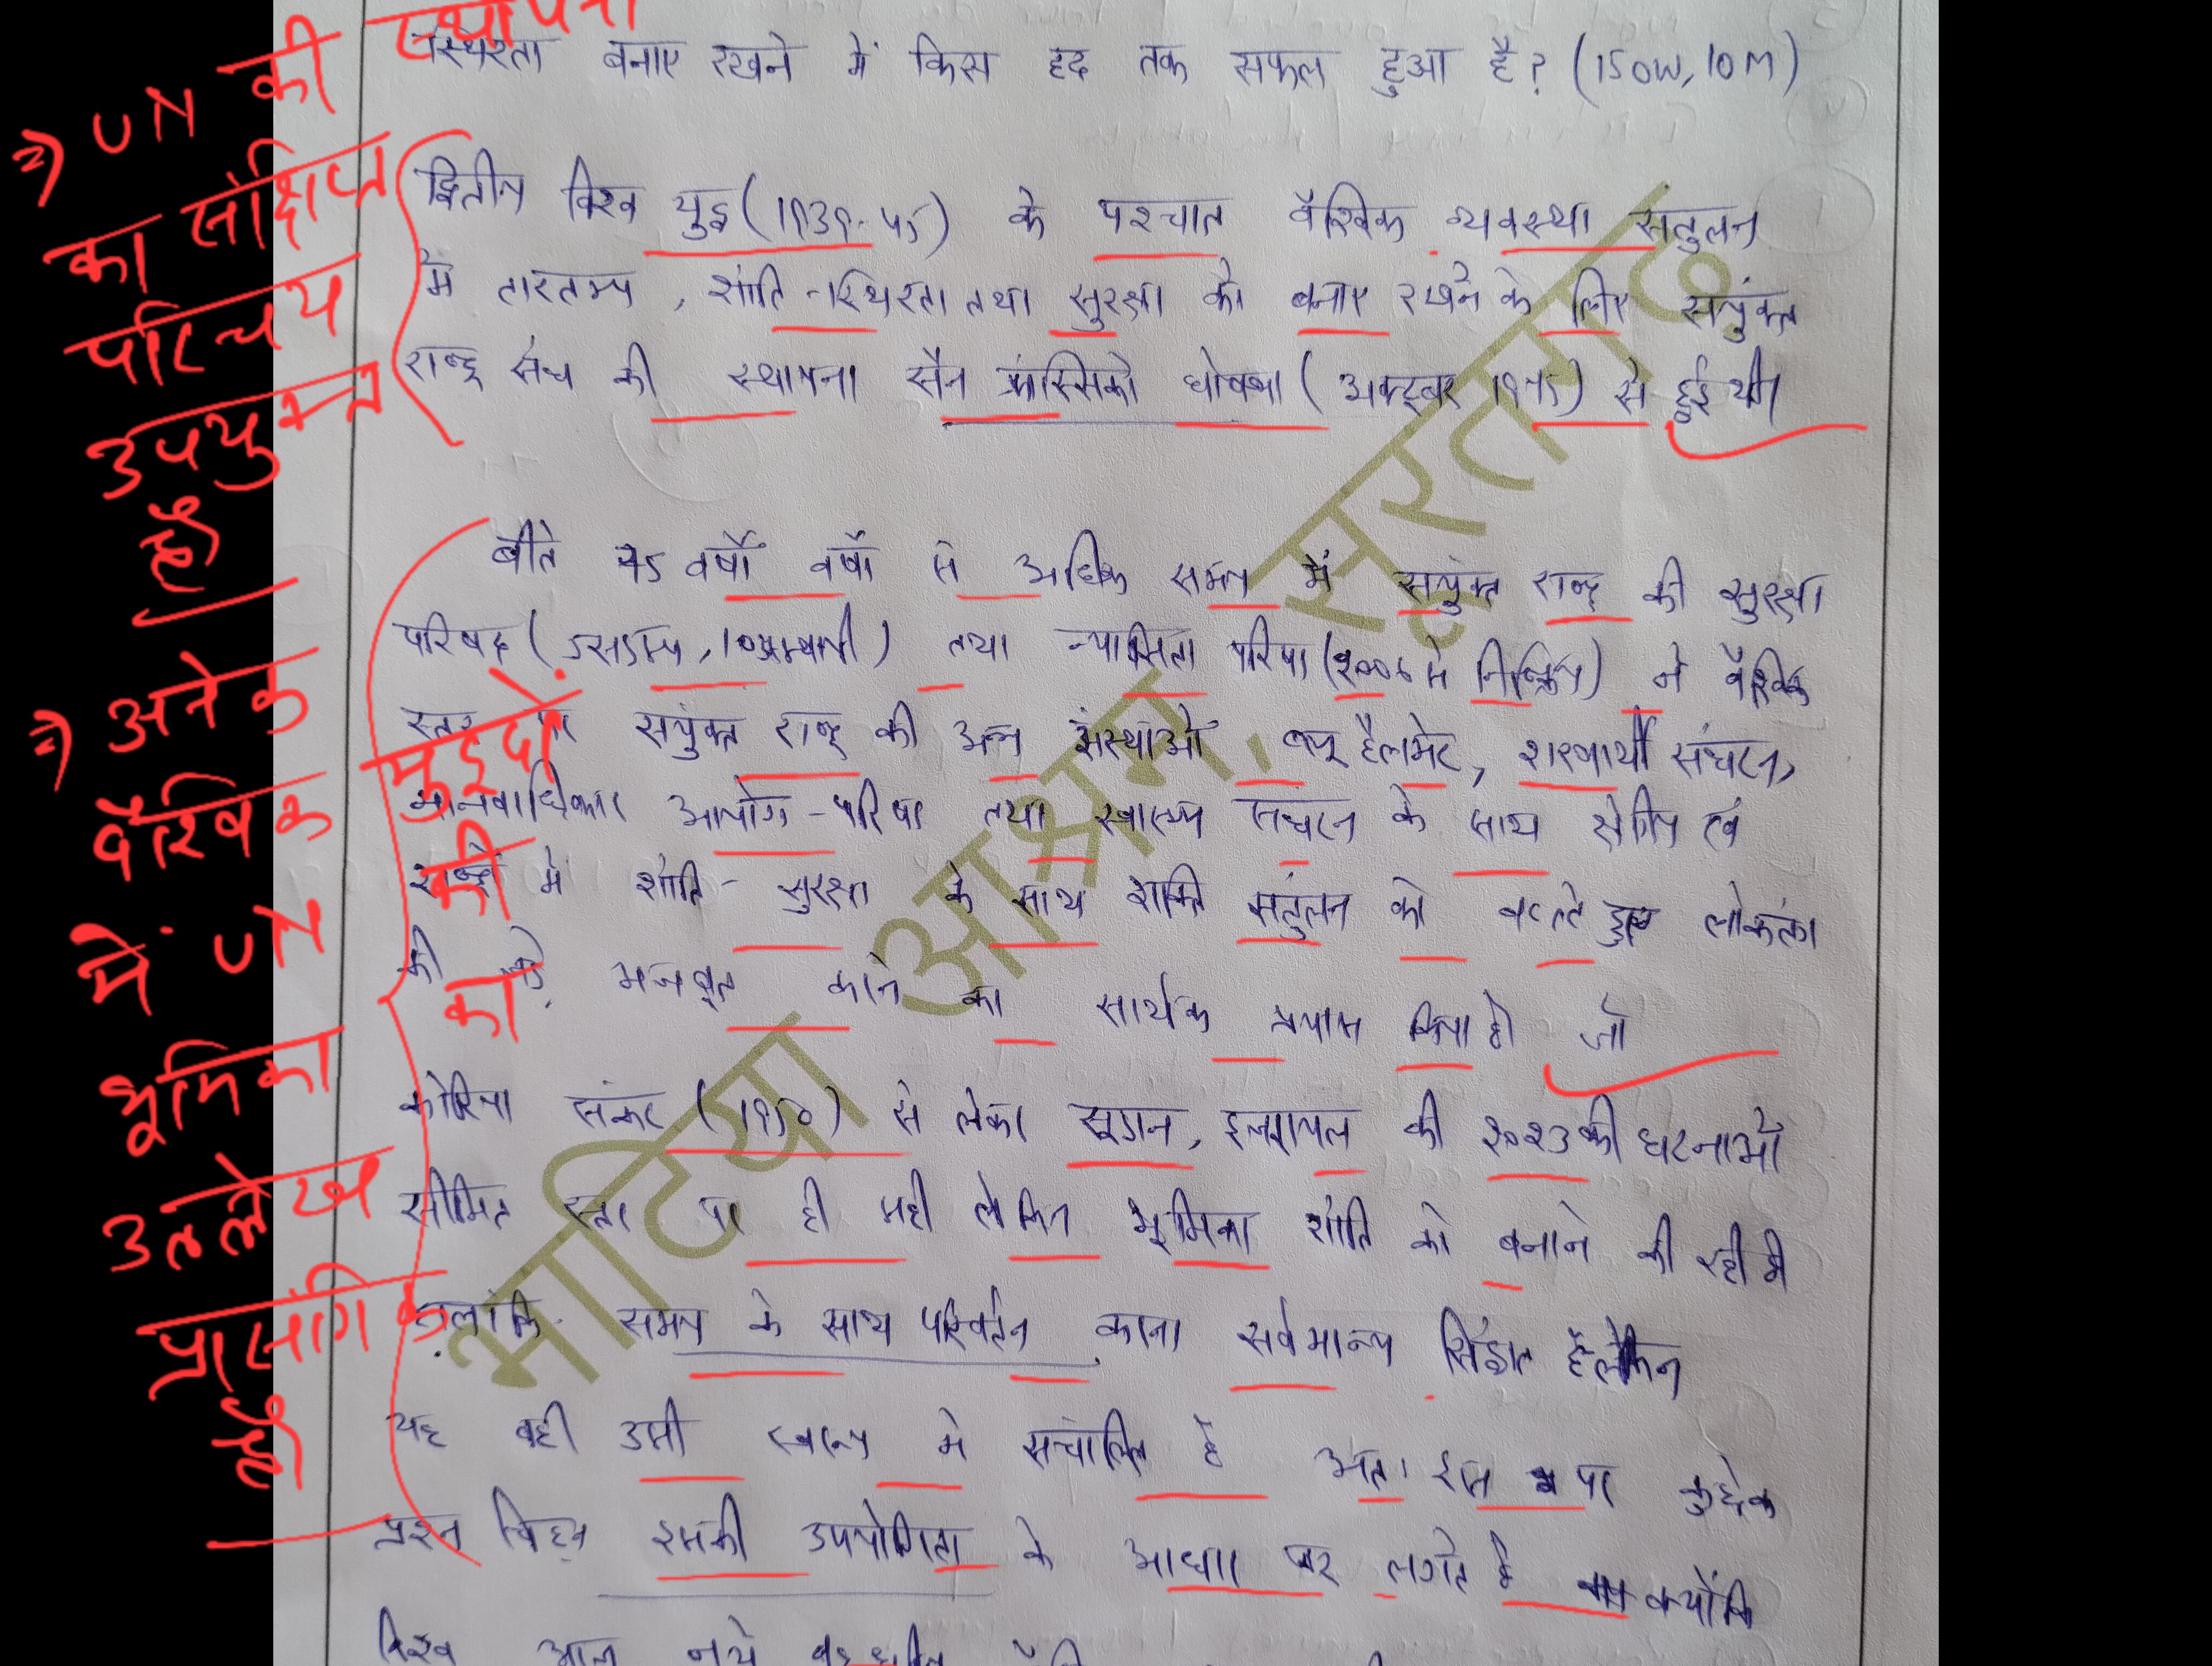 स्थिरता बनाए रखने में किस हद तक सफल हुआ है? (150W, 10M)
⇒ UN की स्थापना
का संक्षिप्त
परिचय
उपयुक्त
है।
द्वितीय विश्व युद्ध (1939-45) के पश्चात वैश्विक व्यवस्था संतुलन
में तारतम्य, शांति-स्थिरता तथा सुरक्षा को बनाए रखने के लिए संयुक्त
राष्ट्र संघ की स्थापना सैन फ्रांसिस्को घोषणा (अक्टूबर 1945) से हुई थी।
⇒ अनेक
वैश्विक मुद्दों
में UN की
भूमिका का
उल्लेख
प्रासंगिक
है।
बीते 75 वर्षों वर्षों से अधिक समय में संयुक्त राष्ट्र की सुरक्षा
परिषद ( तथा न्यासिता परिषद में निष्क्रिय) ने वैश्विक
स्तर पर संयुक्त राष्ट्र की अन्य संस्थाओं ब्लू हैलमेट, शरणार्थी संघटन,
मानवाधिकार आयोग-परिषद तथा स्वास्थ्य संघटन के साथ
राष्ट्रों में शांति-सुरक्षा के साथ शक्ति संतुलन को हुए लोकतंत्र
की जड़े मजबूत करने का सार्थक प्रयास किया है। जो
कोरिया संकट (1950) से लेकर सूडान, इजरायल की 2023 की घटनाओं
सीमित स्तर पर ही सही लेकिन भूमिका शांति को बनाने की रही है।
हालांकि समय के साथ परिवर्तन करना सर्वमान्य सिद्धांत है लेकिन
यह वही उसी स्वरूप में संचालित है अतः इस पर कुछेक
प्रश्न चिह्न इसकी उपयोगिता के आधार पर लगते है क्योंकि
विश्व आज नये
भाटिया आश्रम, सूरतगढ़